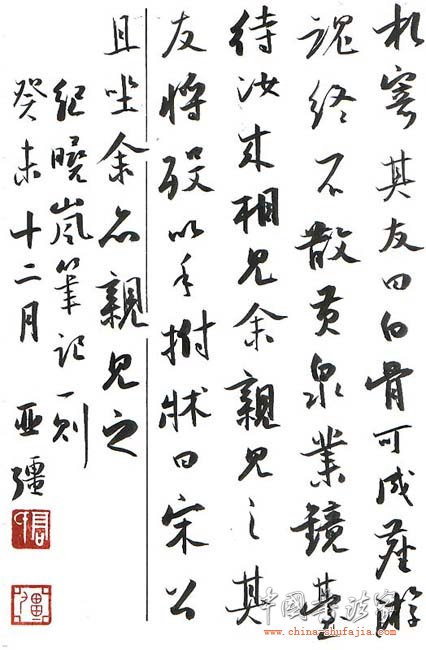 札寄其友曰白骨可成塵游
魂終不散黄泉業鏡臺
待汝来相見余親見之其
友将殁以手拊牀曰宋公
且坐余亦親見之
纪曉嵐筆记一则
癸未十二月 亚彊
中国书法家
www.china-shufajia.com